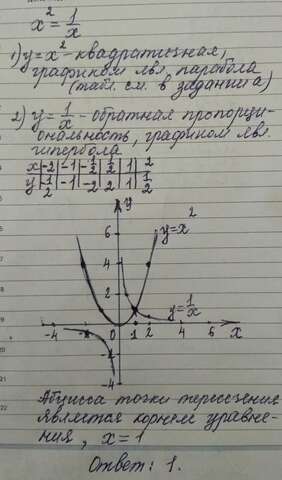 x² = 1/x
1) y = x² - квадратичная,
графиком явл. парабола
(табл. см. в задании а)
2) y = 1/x - обратная пропорци-
ональность, графиком явл.
гипербола
x | -2 | -1 | -1/2 | 1/2 | 1 | 2
y | -1/2 | -1 | -2 | 2 | 1 | 1/2
y
6
y = x²
4
2
y = 1/x
-4 -2 0 1 2 4 6 x
-4
Абцисса точки пересечения
является корнем уравне-
ния, x = 1
Ответ: 1.